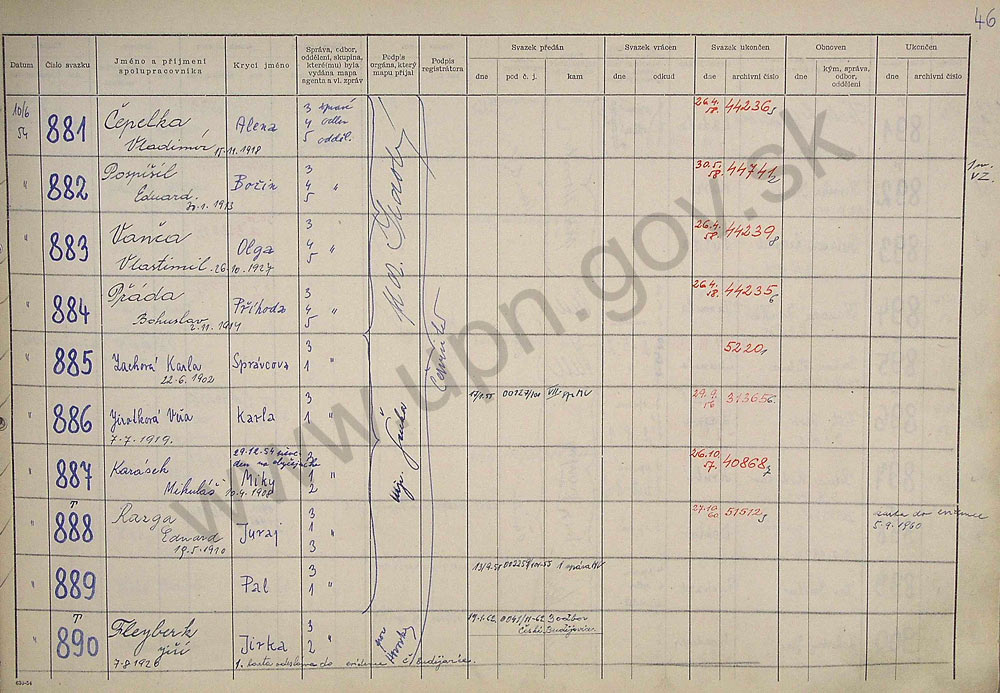 46
Datum
Číslo svazku
Jméno a příjmení spolupracovníka
Krycí jméno
Správa, odbor, oddělení, skupina, které(mu) byla vydána mapa agenta a vl. zpráv
Podpis orgána, který mapu přijal
Podpis registrátora
Svazek předán
dne
pod č. j.
kam
Svazek vrácen
dne
odkud
Svazek ukončen
dne
archivní číslo
Obnoven
dne
kým, správa, odbor, oddělení
Ukončen
dne
archivní číslo
10/6 54
881
Čepelka
Vladimír 15.11.1918
Alena
3 správě
4 odbor
5 odděl.
26.4. 58. 44236/5
" 882
Pospíšil
Eduard
Bočin
3
4 "
5
30.5. 58. 44741/2
" 883
Vanča
Vlastimil 26.10.1927
Olga
3
4 "
5
26.4. 58. 44239/8
" 884
Práda
Bohuslav 2.11.1914
Příhoda
3
4 "
5
26.4. 58. 44235/6
" 885
Zachová Karla
22.6.1902
Správcova
3
1 "
5220/1
" 886
Jirotková Věra
7.7.1919.
Karla
3
1 "
29.9. 56 31365/6
" 887
Karásek
Mikuláš 10.4.1908
29.12.54
Miky
3
1 "
2
26.10. 57. 40868/7
" T 888
Razga
Eduard
19.5.1910
Juraj
3
1
3
27.10 60 51512/5
karta do evidence
5.9.1960
" 889
Pal
3
1 "
1 správa MV
" T 890
Fleyberk
Jiří
7.8.1926
Jirka
3
2 "
19.1.62 0041/11-62 3 odbor
České Budějovice.
1. karta odeslána do evidence Č. Budějovice.
www.upn.gov.sk